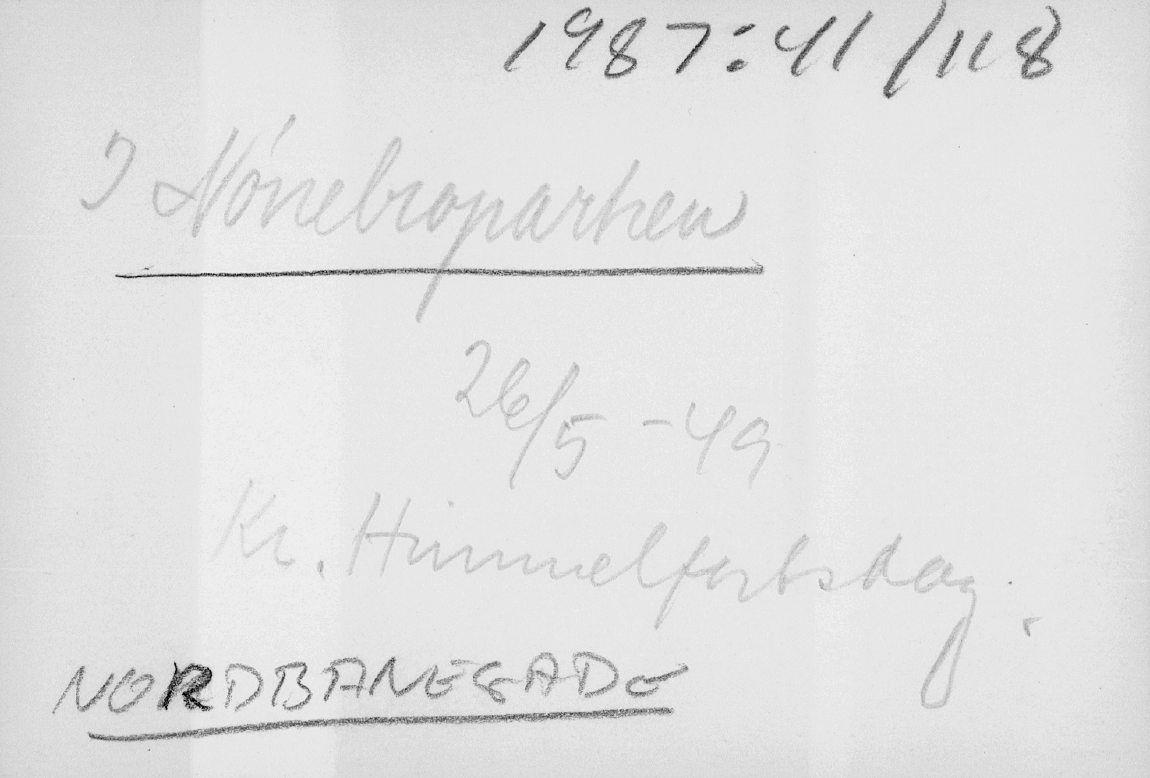 1987:41/118
I Nörrebroparken
26/5 - 49
Kr. Himmelfartsdag.
NORDBANEGADE